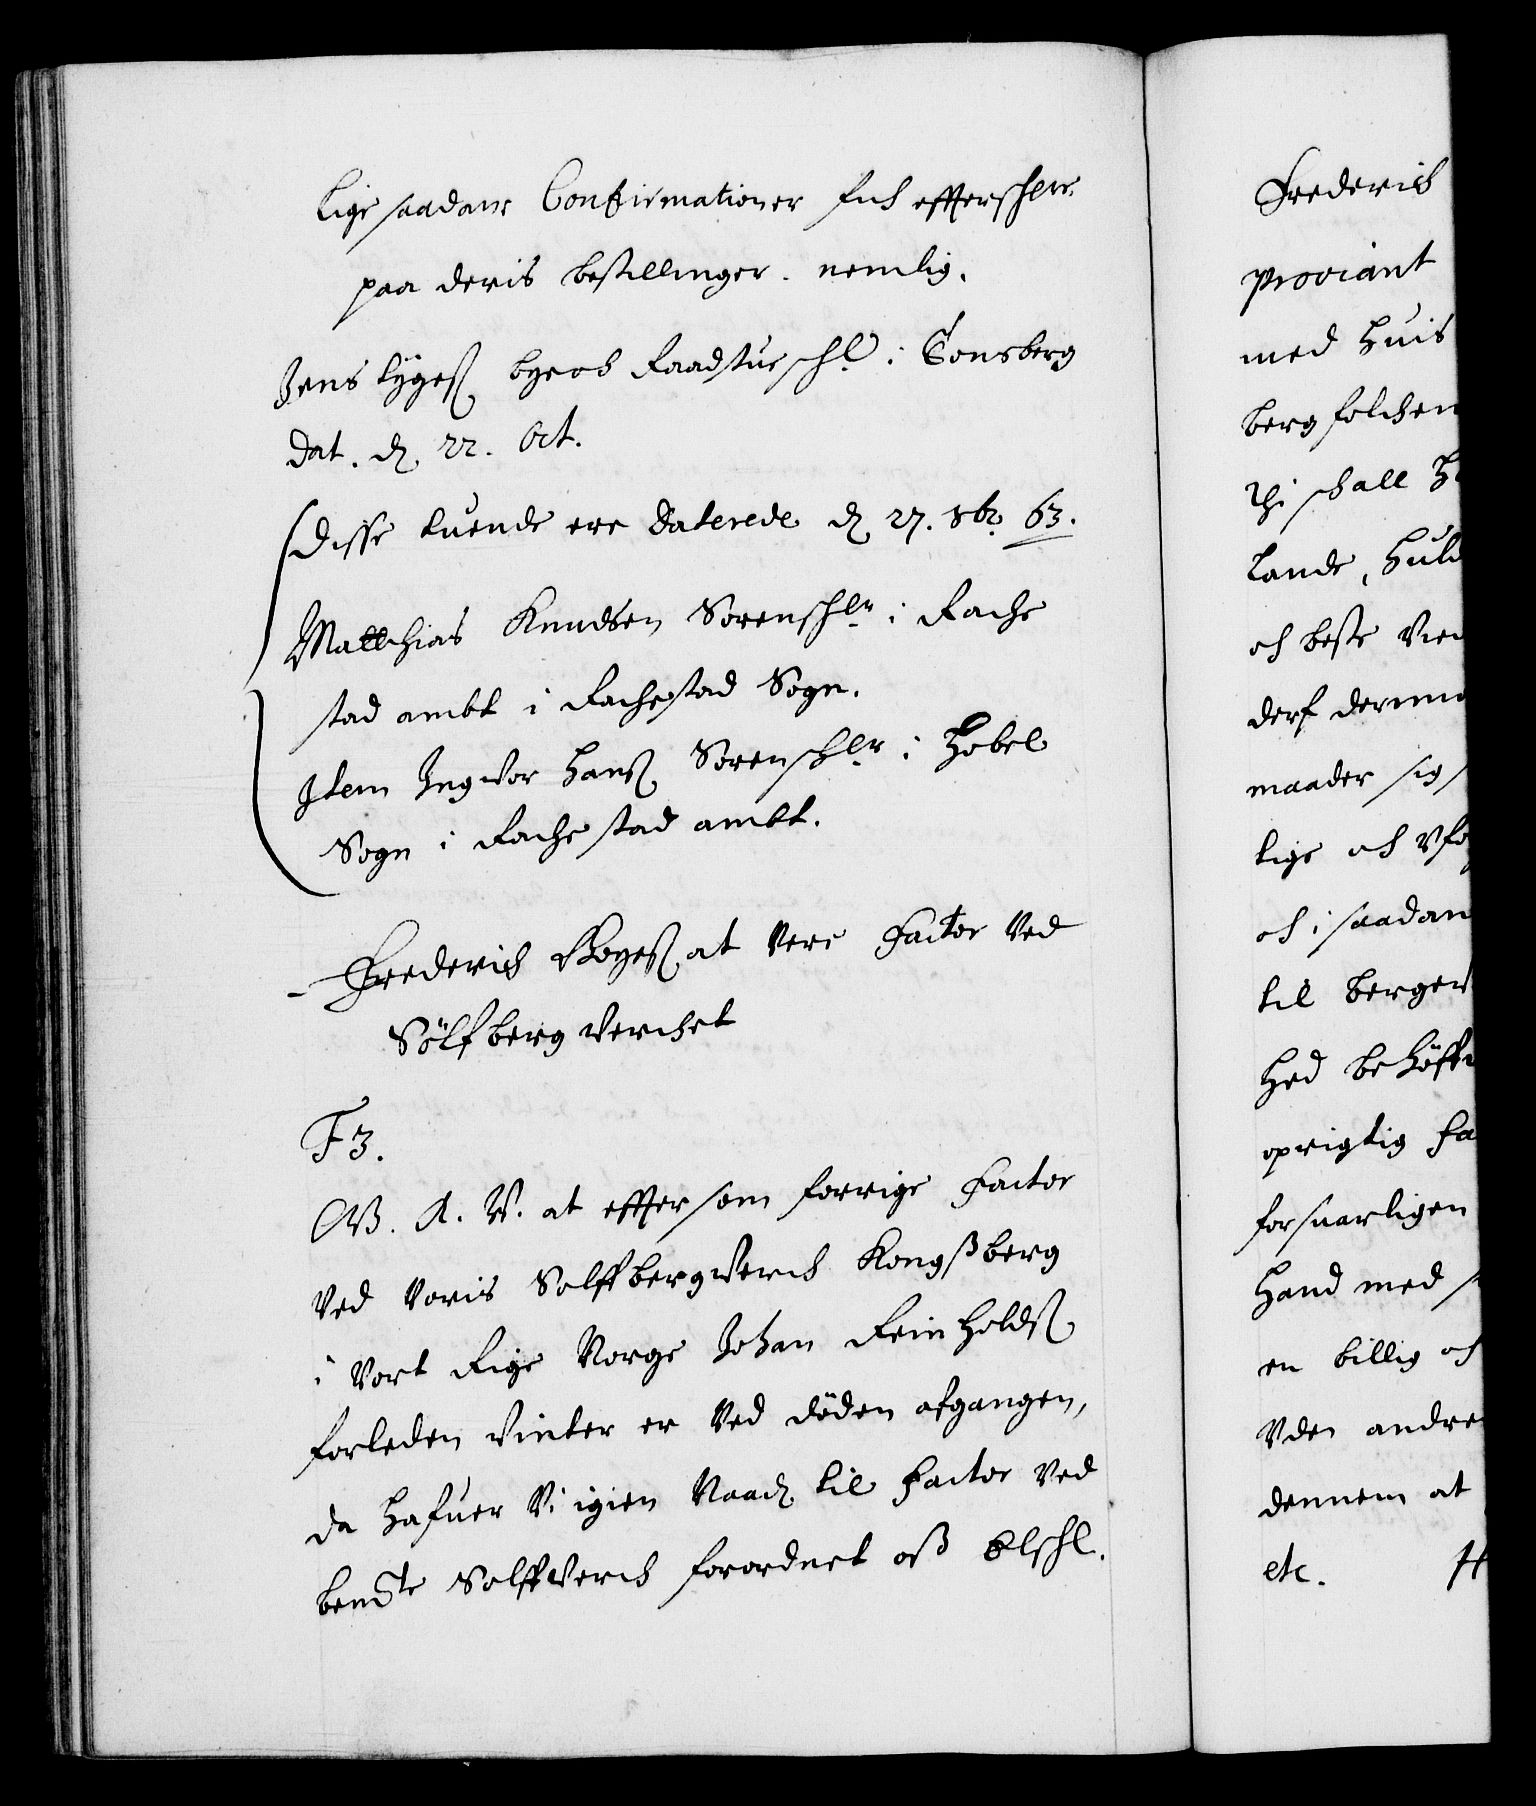 lige saadane Confirmationer fich effterschne
paa deris bestillinger. nemlig.
Jens Lygeß byeoch Raadstueschr i Tonsberg
dat. d. 22. Oct.
Disse tuende ere daterede d 27. 8br 63.
Matthias Knudsen Sorenschr i Rache
stad ambt i Rachestad Sogn.
Item Ingvor Hanß Sorenschr i Hobel
Sogn i Rachestad ambt.
Frederich Boyeß at vere Factor ved
Sölfberg verchet
F3.
G. A. V. at effter som forrige Factor
ved voris Solffbergverch Kongßberg
i vort Rige Norge Johan Reinholdß
forleden vinter er ved döden afgangen,
da hafuer Vi igien Naadh til Factor ved
bemte Solffverch forordnet oß Elschl.
Frederich
proviant
med huis
berg folchen
thi schall
lande, huld
och beste
derf
maader sig
lige och
och i saadan
til berger
hed behöff
oprigtig
forsuarligen
Hand med
en billig och
Vden andre
dennem at
etc.